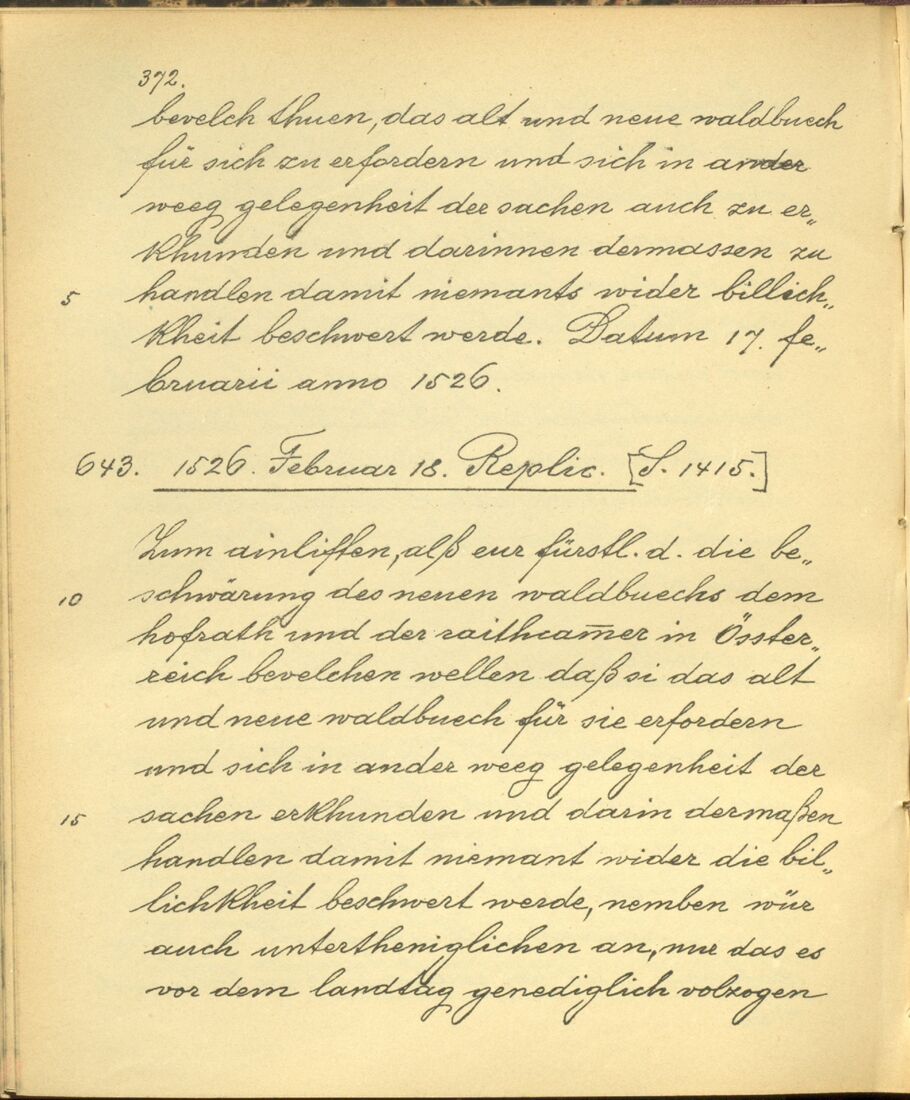 372.
bevelch thuen, das alt und neue waldbuech
für sich zu erfordern und sich in ander
weeg gelegenheit der sachen auch zu er„
khunden und darinnen dermassen zu
5 handlen damit niemants wider billich„
kheit beschwert werde. Datum 17. fe„
bruarii anno 1526.
643. 1526. Februar 18. Replic. [S. 1415.]
Zum ainliften, alß eur fürstl. d. die be„
10 schwärung des neuen waldbuechs dem
hofrath und der raithcam̅er inÖsster„
reich bevelchen wellen daß si das alt
und neue waldbuech für sie erfordern
und sich in ander weeg gelegenheit der
15 sachen erkhunden und darin dermaßen
handlen damit niemant wider die bil„
lichkheit beschwert werde, nemben wür
auch untertheniglichen an, nur das es
vor dem landtag genediglich volzogen